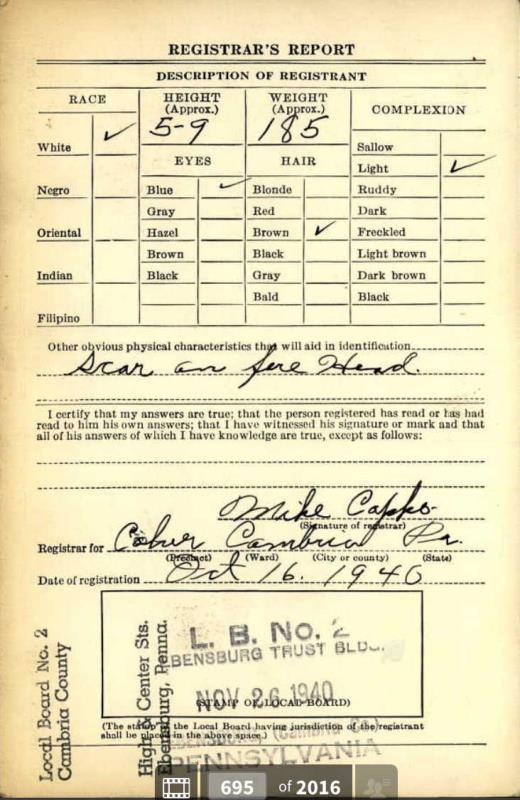 REGISTRAR'S REPORT
DESCRIPTION OF REGISTRANT
RACE
HEIGHT
(Approx.)
WEIGHT
(Approx.)
COMPLEXION
5-9
185
White ✓
EYES
HAIR
Sallow
Light ✓
Negro
Blue ✓
Blonde
Ruddy
Gray
Red
Dark
Oriental
Hazel
Brown ✓
Freckled
Brown
Black
Light brown
Indian
Black
Gray
Dark brown
Bald
Black
Filipino
Other obvious physical characteristics that will aid in identification
Scar on fore Head.
I certify that my answers are true; that the person registered has read or has had
read to him his own answers; that I have witnessed his signature or mark and that
all of his answers of which I have knowledge are true, except as follows:
Mike Cappo
(Signature of registrar)
Registrar for Cambria Pa.
(Precinct) (Ward) (City or county) (State)
Date of registration Oct 16. 1940
Local Board No. 2
Cambria County
High & Center Sts.
Ebensburg, Penna.
L. B. No. 2
EBENSBURG TRUST BLDG.
NOV 26 1940
(STAMP OF LOCAL BOARD)
(The stamp of the Local Board having jurisdiction of the registrant
shall be placed in the above space.)
EBENSBURG, (Cambria Co.)
PENNSYLVANIA
695 of 2016